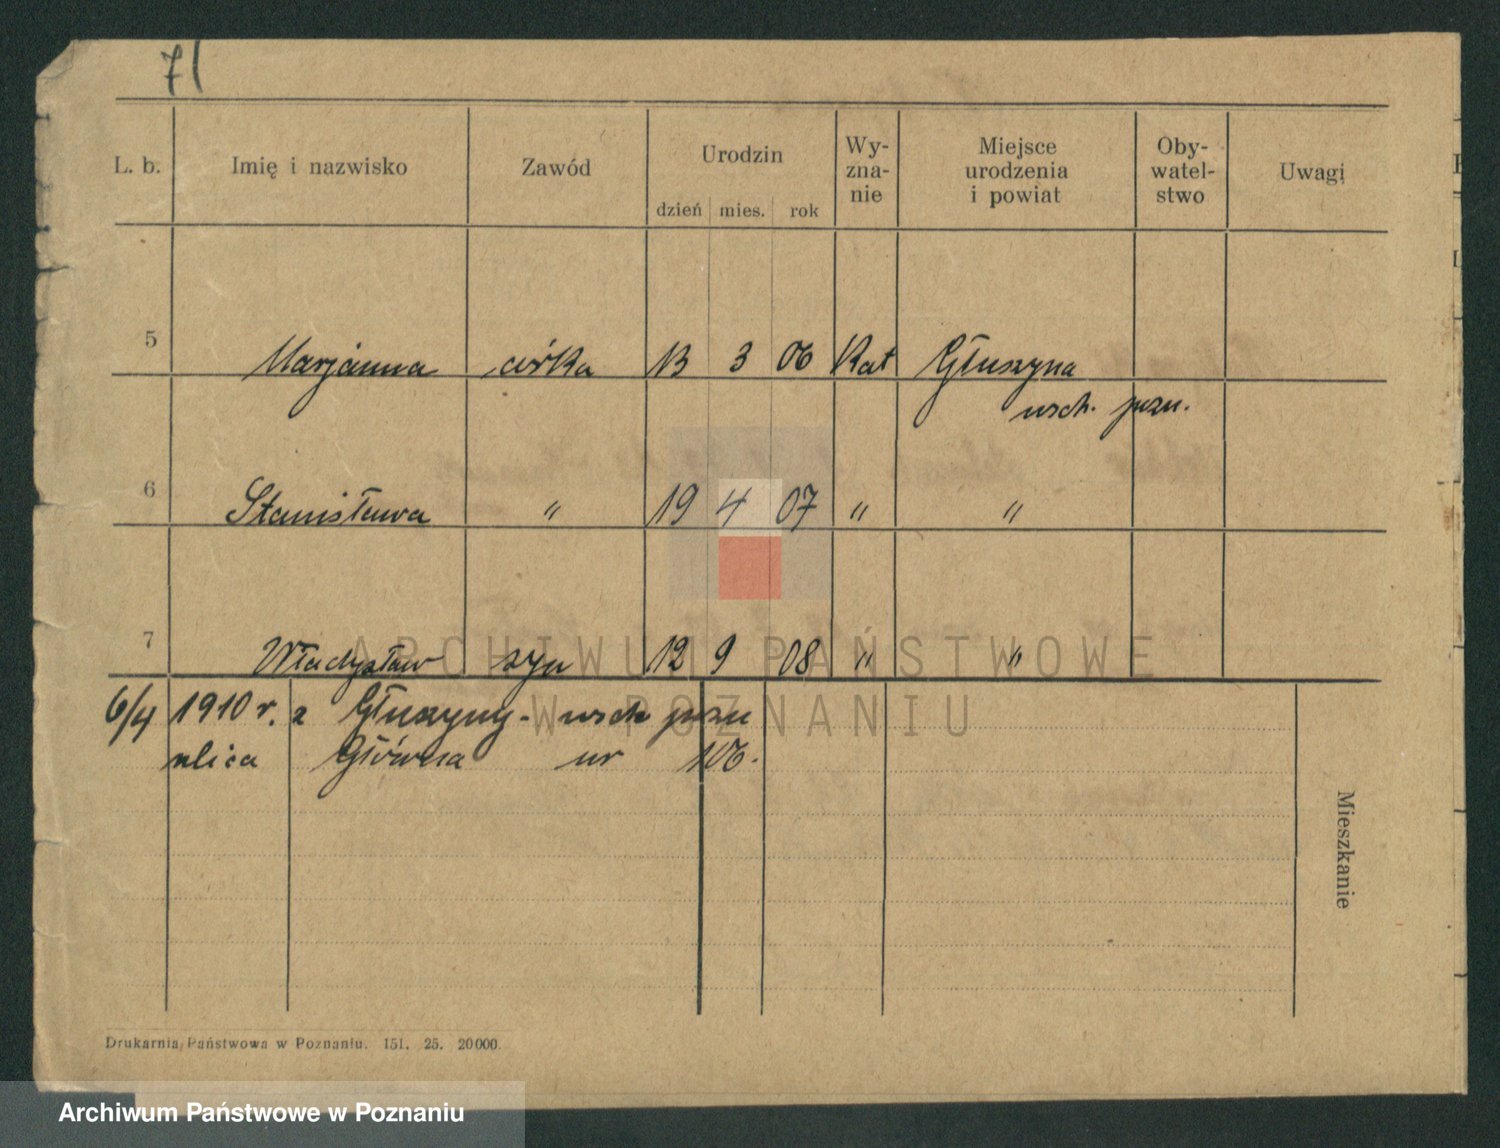 71
L. b. Imię i nazwisko Zawód Urodzin Wy-zna-nie Miejsce urodzenia i powiat Oby-watel-stwo Uwagi
dzień mies. rok
5 Marjanna córka 13 3 06 Kat Głuszyna
wsch. pozn.
6 Stanisława " 19 4 07 " "
7 Władysław syn 12 9 08 " "
ARCHIWUM PAŃSTWOWE
W POZNANIU
6/4 1910 r. z Głuszyny - wsch pozn
ulica Główna nr 106.
Mieszkanie
Drukarnia Państwowa w Poznaniu. 151. 25. 20000.
Archiwum Państwowe w Poznaniu